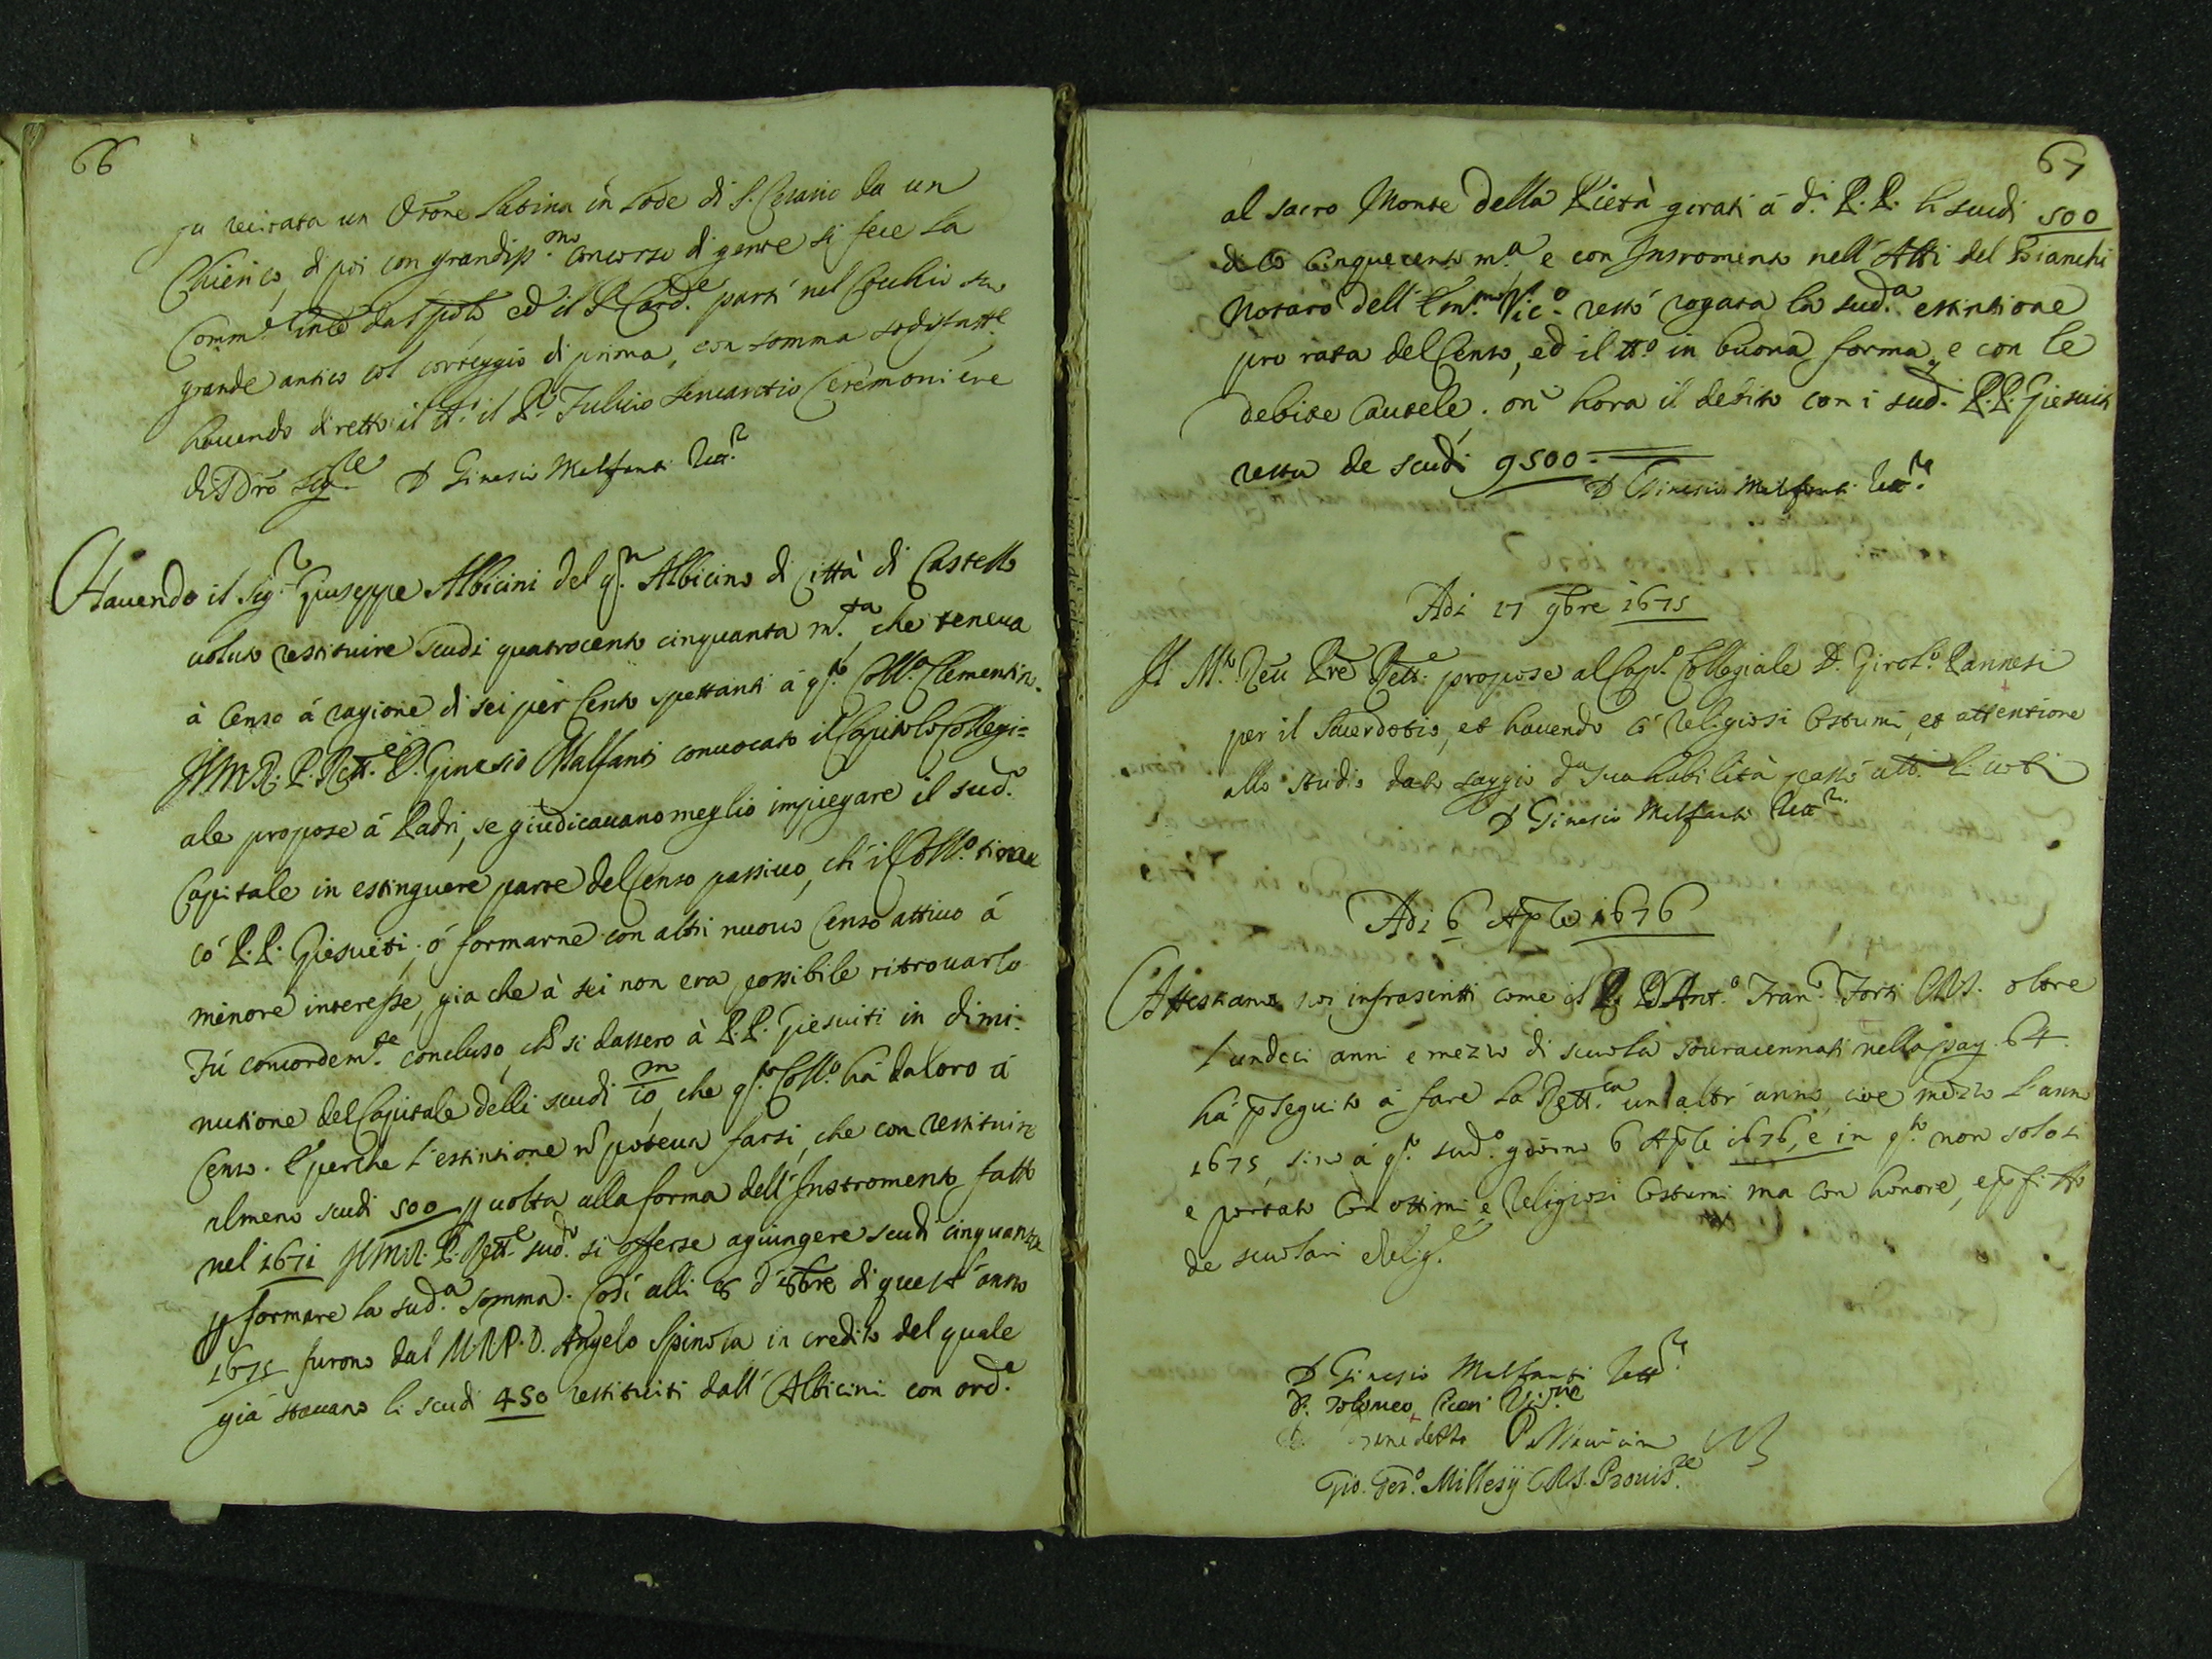 66
fu recitata un Orõne latina in lode di S. Cesario da un
Chierico, di poi con grandiss.mo concorso di gente si fece la
Comm.e dal ed il S.r Card.e partí nel Cocchio suo
grande antico col corteggio di prima, con somma sodisfatt.e
havendo diretto il tt.o il P. Fulvio Servantio Ceremoniere
di Ñro Sig.re D Ginesio Malfanti Rett.re
Havendo il Sig.r Giuseppe Albicini del q.m Albicino di Città di Castello
voluto restituire scudi quatrocento cinquanta m.ta che teneva
à Censo á ragione di sei per Cento spettanti á q.sto Coll.o Clementin.
Il M.R. P. Rett.e D. Ginesio Malfanti convocato il Capitolo Collegi=
ale propose á Padri, se giudicavano meglio impiegare il sud.o
Capitale in estinguere parte del Censo passivo, ch'il Coll.o tiene
có P.P. Giesuiti, ó formarne con altri nuovo Censo attivo á
minore interesse, gia che à sei non era possibile ritrovarlo
Fú concordem.te concluso, ch̃ si dassero à P.P. Giesuiti in dimi:
nutione del Capitale delli scudi 10 m che q.sto Coll.o há da loro á
Censo. E perche l'estintione nõ poteva farsi, che con restituire
almeno scudi 500 p volta alla forma dell'Instromento fatto
nel 1671 Il M.R. P. Rett.e sud.o si offerse agiungere scudi cinquanta
p formare la sud.a somma. Cosí alli 16 d'8bre di quest'anno
1675 furono dal M.R.P. D. Angelo Spinola in credito del quale
giá stavano li scudi 450 restituiti dall'Albicini con ord.e
67
al sacro Monte della Pietà girati á d.i P.P. li scudi 500
dico Cinquecento m.a e con Instromento nell'Atti del Bianchi
Notaro dell'Em.mo Vic.o restò rogata la sud.a estintione
pro rata del Censo, ed il tt.o in buona forma, e con le
debite Cautele. onď hora il debito con i sud.i P.P. Giesuiti
resta de scudi 9500.
D Ginesio Malfanti Rett.re
Adi 17 9bre 1675
Il M.to Reũ Prẽ Rett.e propose al Cap.o Collegiale D. Girol.o Pannesi
per il Sacerdotio, et havendo có religiosi Costumi, et attentione
allo studio dato saggio d sua habilità passò
D Ginesio Malfanti Rett.re
Adi 6 Aple 1676
Attestiamo noi infrascritti come il P. D Ant.o Fran.o Forti CRS. oltre
l'undeci anni e mezzo di scuola souracennati nella pag. 64.
há pseguito á fare la Rett.ca un altr'anno, cioe mezzo l'anno
1675, sino á q.sto sud.o giorno 6 Aple 1676, e in q.sto non solo si
e portato con ottimi, e Religiosi Costumi ma con honore, e pfitto
de scuolari e Relig.e
D Ginesio Malfanti Rett.re
D.
Benedetto Pallavicino
Gio. Ger.o Millesij CRS. Provis.re